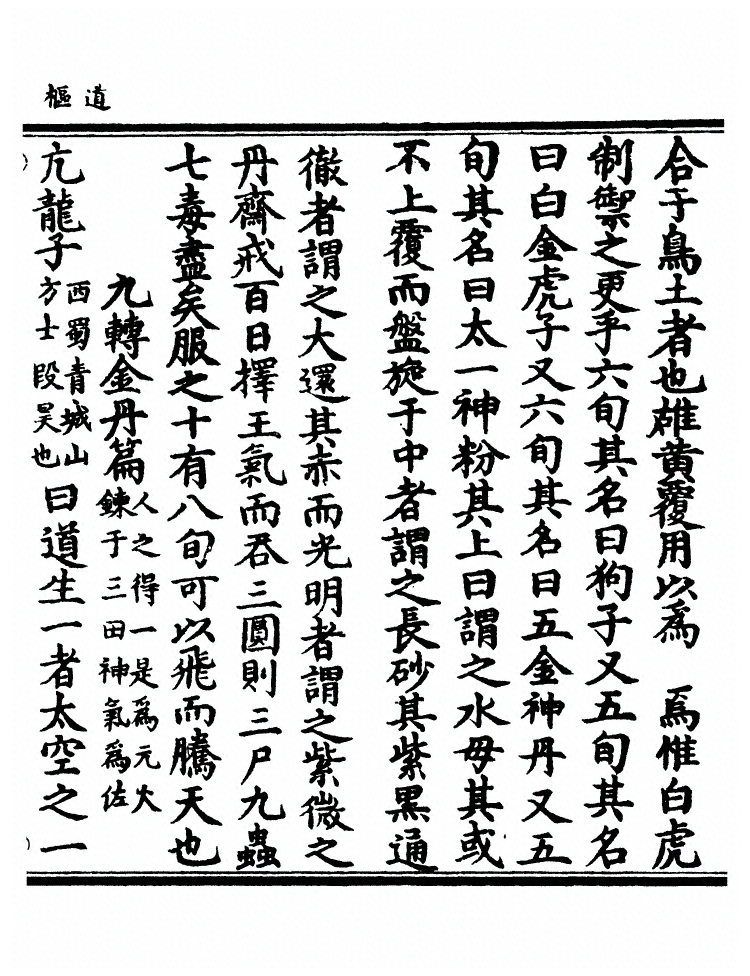 道樞
合于烏土者也雄黃覆用以為　焉惟白虎
制禦之更乎六旬其名曰狗子又五旬其名
曰白金虎子又六旬其名曰五金神丹又五
旬其名曰太一神粉其上曰謂之水母其或
不上覆而盤旋于中者謂之長砂其紫黑通
徹者謂之大還其赤而光明者謂之紫微之
丹齋戒百日擇王氣而吞三圓則三尸九蟲
七毒盡矣服之十有八旬可以飛而騰天也
九轉金丹篇
人之得一是為元火
鍊于三田神氣為佐
亢龍子
西蜀青城山
方士段昊也
曰道生一者太空之一